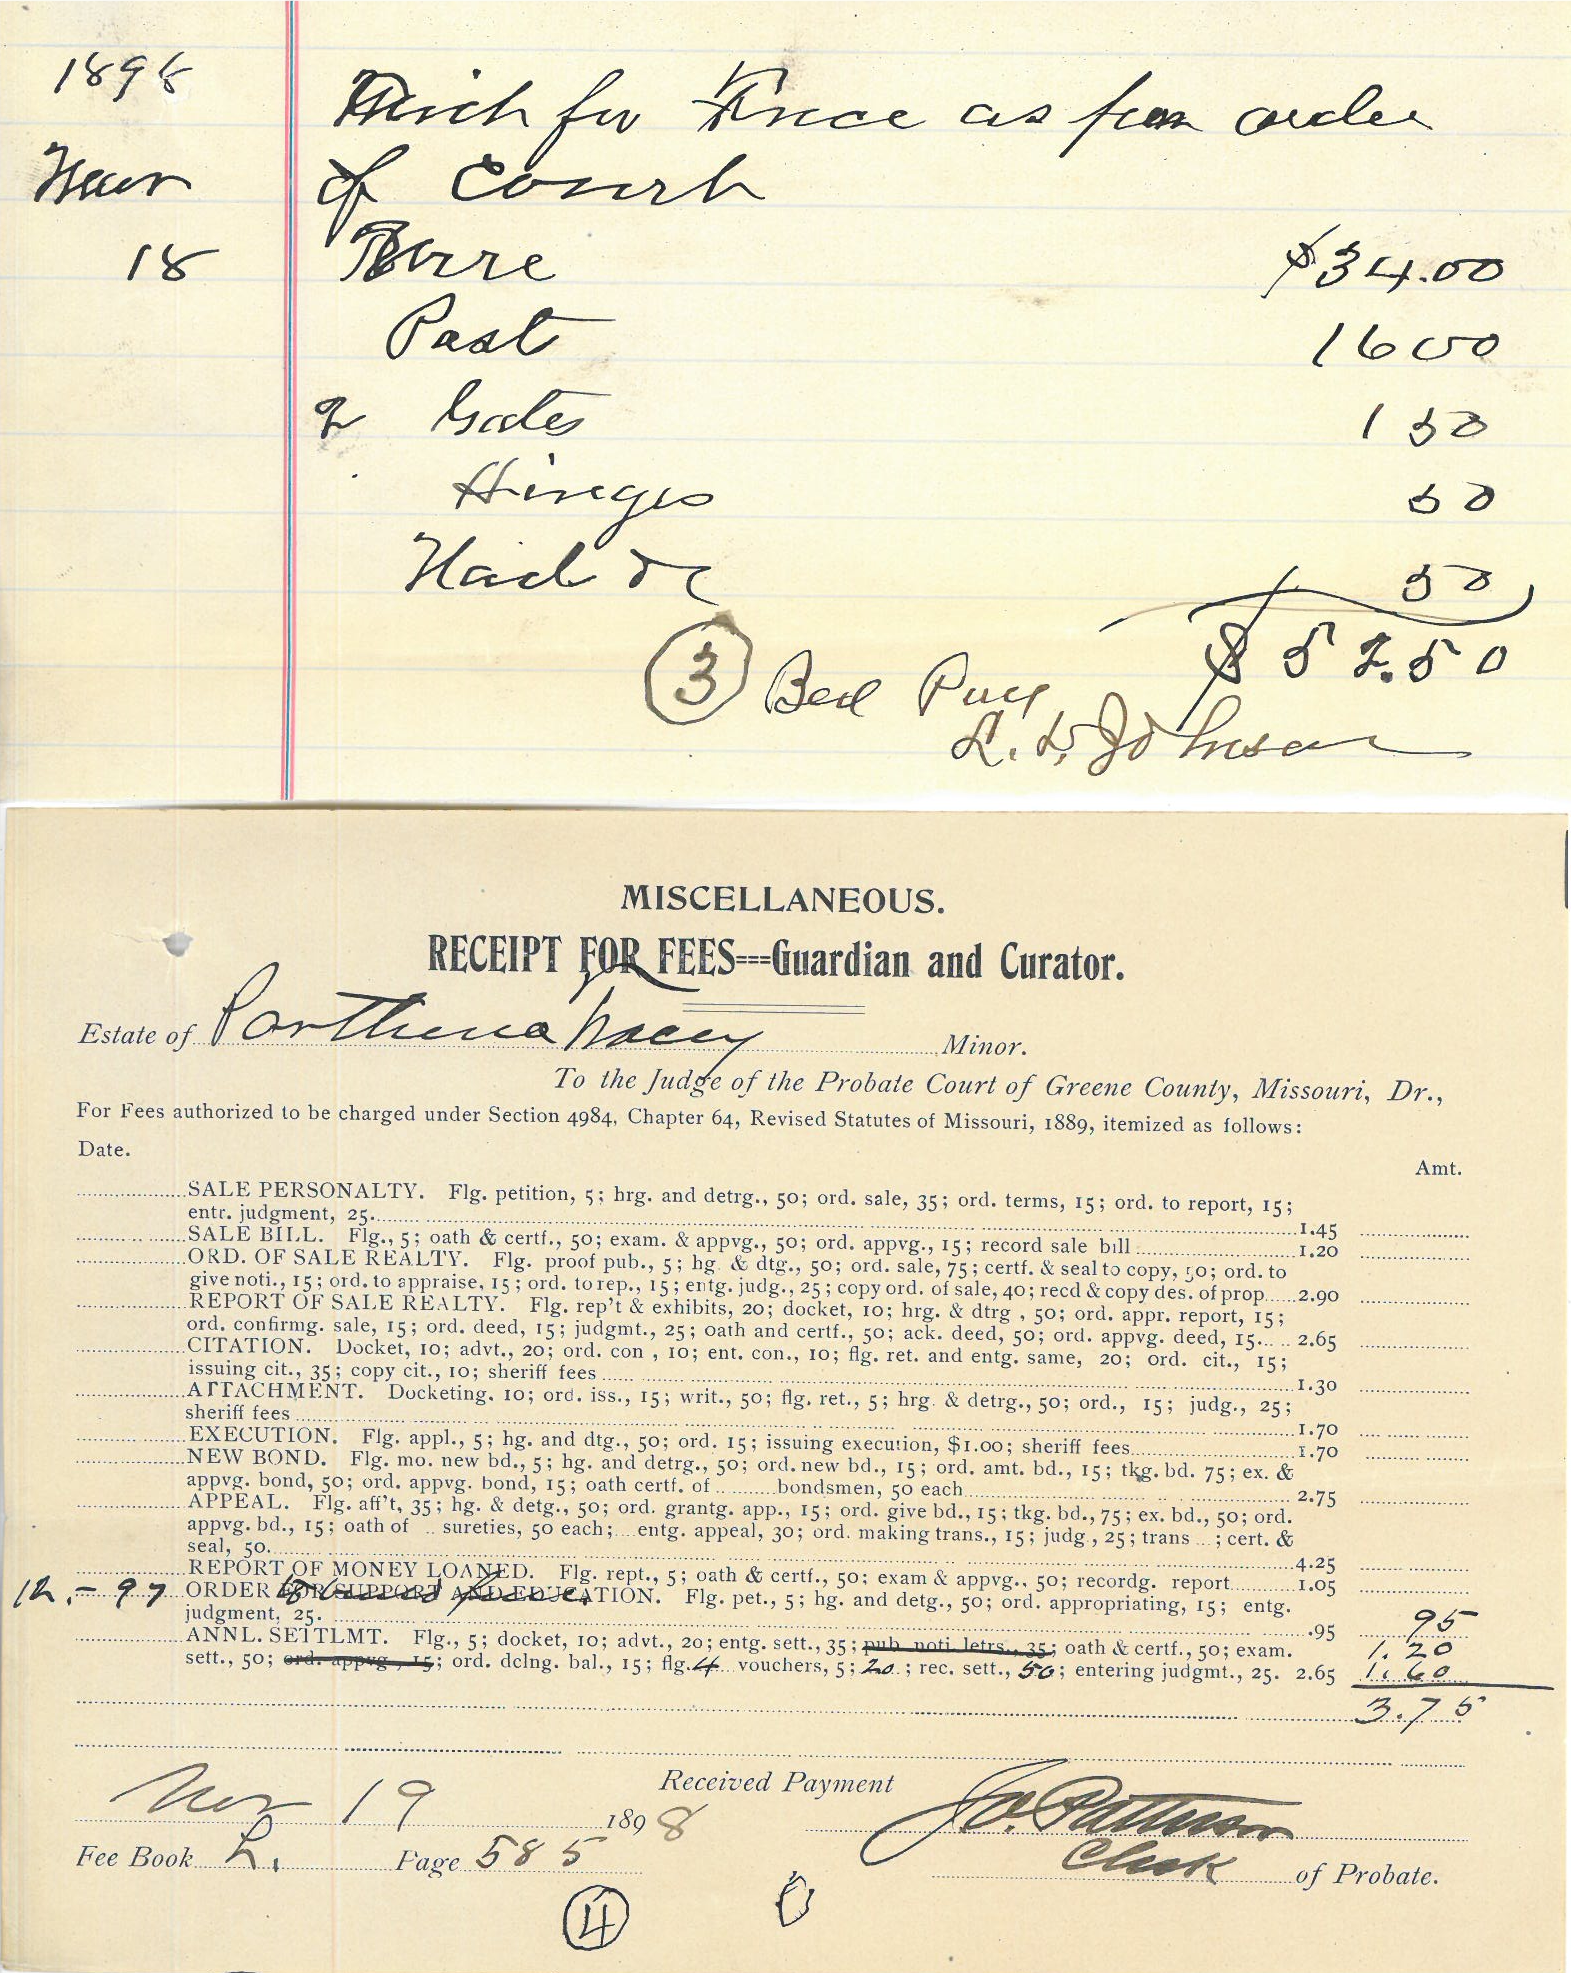 1898
for Fence as per order
Nov of Court
18 Wire $34.00
Post 16 00
2 Gates 1 50
Hinges 50
Nails &c 50
$ 52.50
3 Recd Pay
L. W. Johnson
MISCELLANEOUS.
RECEIPT FOR FEES===Guardian and Curator.
Estate of Parthena Macey Minor.
To the Judge of the Probate Court of Greene County, Missouri, Dr.,
For Fees authorized to be charged under Section 4984, Chapter 64, Revised Statutes of Missouri, 1889, itemized as follows:
Date.
Amt.
SALE PERSONALTY. Flg. petition, 5; hrg. and detrg., 50; ord. sale, 35; ord. terms, 15; ord. to report, 15;
entr. judgment, 25. 1.45
SALE BILL. Flg., 5; oath & certf., 50; exam. & appvg., 50; ord. appvg., 15; record sale bill 1.20
ORD. OF SALE REALTY. Flg. proof pub., 5; hg. & dtg., 50; ord. sale, 75; certf. & seal to copy, 50; ord. to
give noti., 15; ord. to appraise, 15; ord. to rep., 15; entg. judg., 25; copy ord. of sale, 40; recd & copy des. of prop. 2.90
REPORT OF SALE REALTY. Flg. rep't & exhibits, 20; docket, 10; hrg. & dtrg , 50; ord. appr. report, 15;
ord. confirmg. sale, 15; ord. deed, 15; judgmt., 25; oath and certf., 50; ack. deed, 50; ord. appvg. deed, 15. 2.65
CITATION. Docket, 10; advt., 20; ord. con , 10; ent. con., 10; flg. ret. and entg. same, 20; ord. cit., 15;
issuing cit., 35; copy cit., 10; sheriff fees 1.30
ATTACHMENT. Docketing. 10; ord. iss., 15; writ., 50; flg. ret., 5; hrg. & detrg., 50; ord., 15; judg., 25;
sheriff fees 1.70
EXECUTION. Flg. appl., 5; hg. and dtg., 50; ord. 15; issuing execution, $1.00; sheriff fees 1.70
NEW BOND. Flg. mo. new bd., 5; hg. and detrg., 50; ord. new bd., 15; ord. amt. bd., 15; tkg. bd. 75; ex. &
appvg. bond, 50; ord. appvg. bond, 15; oath certf. of bondsmen, 50 each 2.75
APPEAL. Flg. aff't, 35; hg. & detg., 50; ord. grantg. app., 15; ord. give bd., 15; tkg. bd., 75; ex. bd., 50; ord.
appvg. bd., 15; oath of sureties, 50 each; entg. appeal, 30; ord. making trans., 15; judg., 25; trans ; cert. &
seal, 50. 4.25
REPORT OF MONEY LOANED. Flg. rept., 5; oath & certf., 50; exam & appvg., 50; recordg. report 1.05
12.-97 ORDER FOR SUPPORT AND EDUCATION. Flg. pet., 5; hg. and detg., 50; ord. appropriating, 15; entg.
to build fence
judgment, 25. .95 95
ANNL. SETTLMT. Flg., 5; docket, 10; advt., 20; entg. sett., 35; pub. noti. letrs., 35; oath & certf., 50; exam. 1.20
sett., 50; ord. appvg., 15; ord. dclng. bal., 15; flg. 4 vouchers, 5; 20 ; rec. sett., 50; entering judgmt., 25. 2.65 1.60
3.75
Nov 19 1898
Received Payment Jo. Patterson
Fee Book L. Page 585
Clerk of Probate.
4